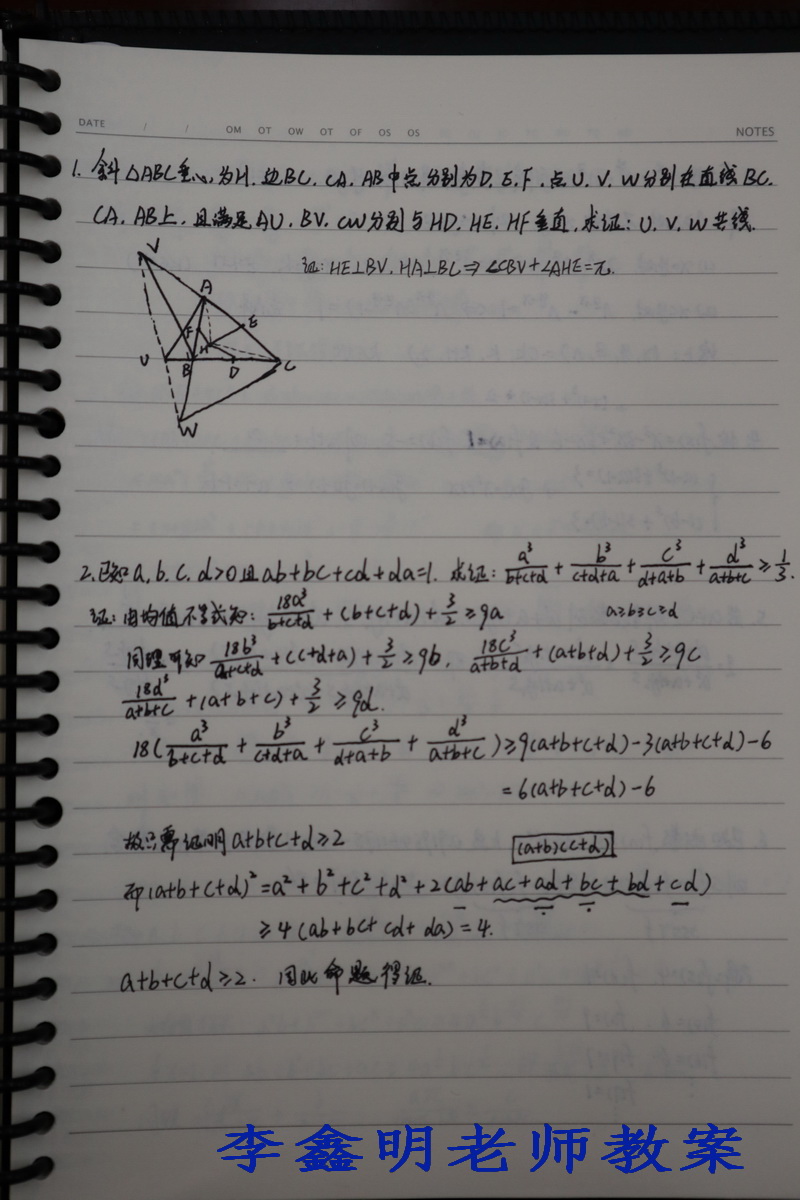 DATE / / OM OT OW OT OF OS OS NOTES
1. 斜△ABC垂心为H. 边BC. CA. AB中点分别为D. E. F. 点U. V. W分别在直线BC.
CA. AB上. 且满足AU. BV. CW分别与HD. HE. HF垂直. 求证: U. V. W共线.
证: HE⊥BV. HA⊥BC ⇒ ∠CBV+∠AHE=π.
V
A
F E
H
U B D C
W
2. 已知a. b. c. d>0且ab+bc+cd+da=1. 求证: a³/(b+c+d) + b³/(c+d+a) + c³/(d+a+b) + d³/(a+b+c) ≥ 1/3.
证: 由均值不等式知: 18a³/(b+c+d) + (b+c+d) + 3/2 ≥ 9a a≥b≥c≥d
同理可知 18b³/(a+c+d) + (c+d+a) + 3/2 ≥ 9b, 18c³/(a+b+d) + (a+b+d) + 3/2 ≥ 9c
18d³/(a+b+c) + (a+b+c) + 3/2 ≥ 9d.
18(a³/(b+c+d) + b³/(c+d+a) + c³/(d+a+b) + d³/(a+b+c)) ≥ 9(a+b+c+d)-3(a+b+c+d)-6
= 6(a+b+c+d)-6
故只需证明a+b+c+d≥2 (a+b)(c+d)
而(a+b+c+d)²=a²+b²+c²+d²+2(ab+ac+ad+bc+bd+cd)
≥4(ab+bc+cd+da)=4.
a+b+c+d≥2. 因此命题得证.
李鑫明老师教案